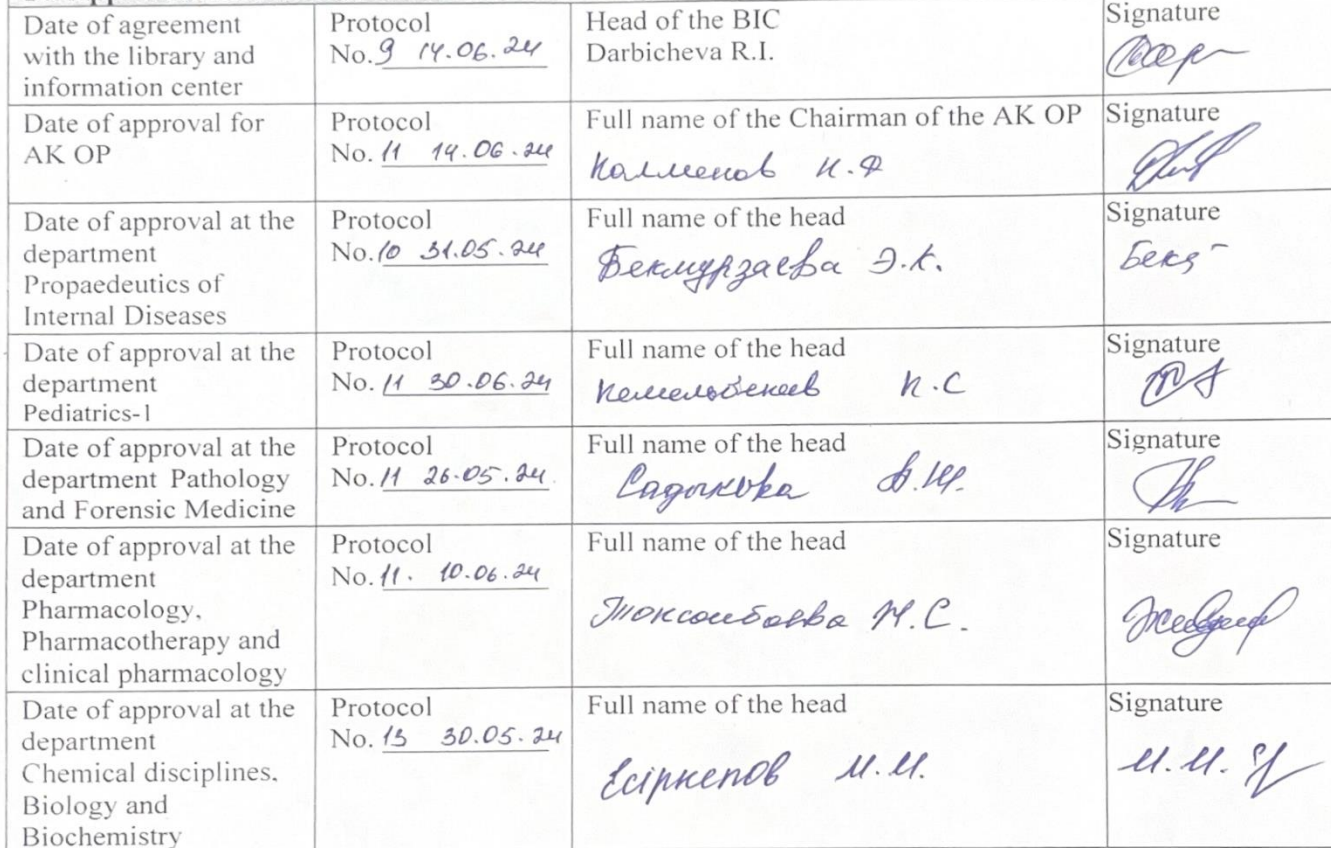 Date of agreement
with the library and
information center
Protocol
No. 9 14.06.24
Head of the BIC
Darbicheva R.I.
Signature
Date of approval for
AK OP
Protocol
No. 11 14.06.24
Full name of the Chairman of the AK OP
Калменов Н.Ф
Signature
Date of approval at the
department
Propaedeutics of
Internal Diseases
Protocol
No. 10 31.05.24
Full name of the head
Бекмурзаева Э.К.
Signature
Date of approval at the
department
Pediatrics-1
Protocol
No. 11 30.06.24
Full name of the head
Кемельбеков К.С
Signature
Date of approval at the
department Pathology
and Forensic Medicine
Protocol
No. 11 26.05.24.
Full name of the head
Садыкова
Signature
Date of approval at the
department
Pharmacology,
Pharmacotherapy and
clinical pharmacology
Protocol
No. 11. 10.06.24
Full name of the head
Токсанбаева Ж.С.
Signature
Date of approval at the
department
Chemical disciplines,
Biology and
Biochemistry
Protocol
No. 13 30.05.24
Full name of the head
Есіркепов М.М.
Signature
М.М.